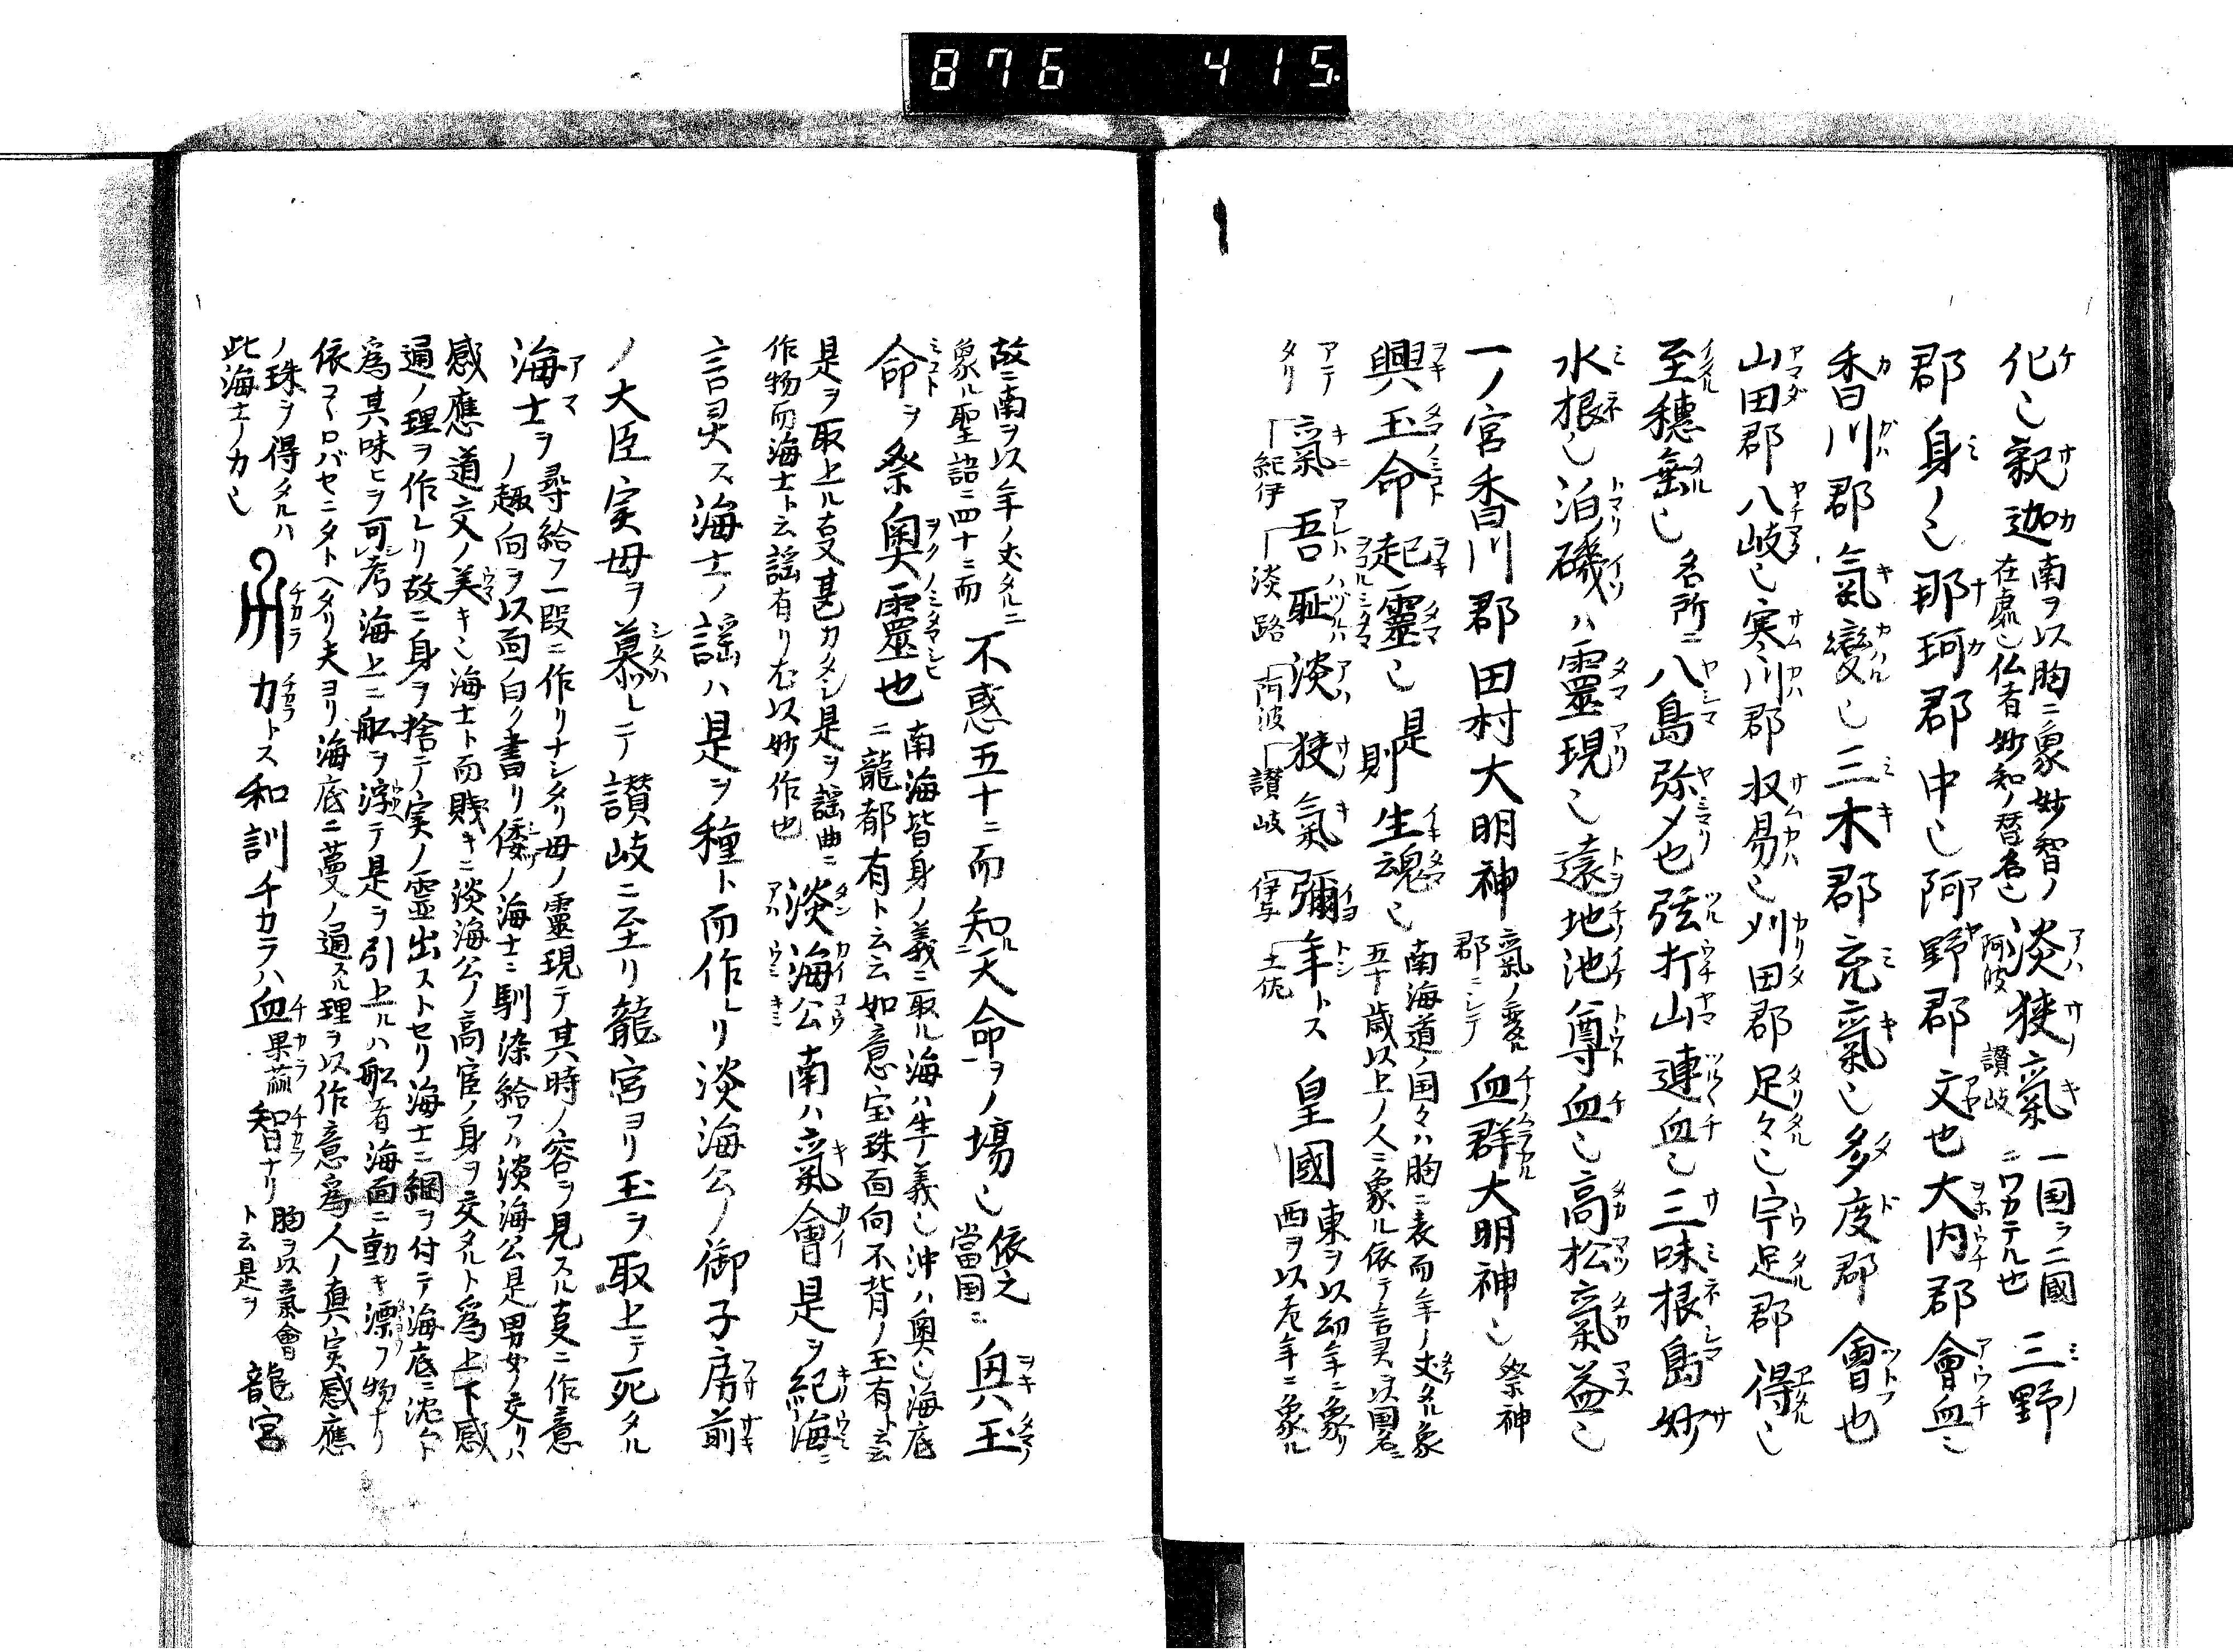 876 415
化也釈迦南ヲ以胸ニ象妙智ノ在處也仏者妙和ノ替名也淡狭氣一国ヲ二國ニワカテル也三野
郡身ノ也那珂郡中也阿野郡文也大内郡會血也
香川郡氣變也三木郡充氣也多度郡會也
山田郡八岐也寒川郡収易也刈田郡足々也宇足郡得也
至穗垂也名所ニ八島弥〆也弦打山連血也三味根島妙
水根也泊磯ハ靈現也遠地池尊血也高松氣益也
一ノ宮香川郡田村大明神氣ノ變ル郡ニシテ血群大明神也祭神
興玉命起靈也是則生魂也南海道ノ国々ハ胸ニ表而年ノ丈タル象五十歳以上ノ人ニ象ル依テ言灵ヲ以国名ニ
アテタリ氣吾耻淡狭氣彌年トス皇國東ヲ以幼年ニ象リ西ヲ以老年ニ象ル
紀伊 淡路 阿波 讃岐 伊与 土佐
故ニ南ヲ以年ノ丈タルニ象ル聖語ニ四十ニ而不惑五十ニ而知天命ヲノ場也依之當国ニ奥玉
命ヲ祭奥靈也南海皆身ノ義ニ取ル海ハ生ノ義也沖ハ奥也海底ニ龍都有ト云云如意宝珠面向不背ノ玉有ト云云
是ヲ取上ル事甚カタシ是ヲ謡曲ニ作物而海士ト云謡有リ尤以妙作也淡海公南ハ氣會是ヲ紀海ニ
言灵ス海士ノ謡ハ是ヲ種ト而作レリ淡海公ノ御子房前
ノ大臣実母ヲ慕レテ讃岐ニ至リ龍宮ヨリ玉ヲ取上テ死タル
海士ヲ尋給フ一段ニ作リナシタリ母ノ靈現テ其時ノ容ヲ見スル事ニ作意
ノ趣向ヲ以面白ク書リ倭ノ海士ニ馴染給フハ淡海公是男女ノ交リハ
感應道交ノ美キ也海士ト而賎キニ淡海公ノ高官ノ身ヲ交タルト為上下感
通ノ理ヲ作レリ故ニ身ヲ捨テ実ノ靈出ストセリ海士ニ綱ヲ付テ海底ニ沈ムト
為其味ヒヲ可考海上ニ舩ヲ浮テ是ヲ引上ルハ舩者海面ニ動キ漂フ物ナリ
依コヽロバセニタトヘタリ夫ヨリ海底ニ蔓ノ通スル理ヲ以作意為人ノ真実感應
ノ珠ヲ得タルハ力トス和訓チカラハ血果蓏智ナリ胸ヲ以氣會ト云是ヲ龍宮
此海士ノカ也